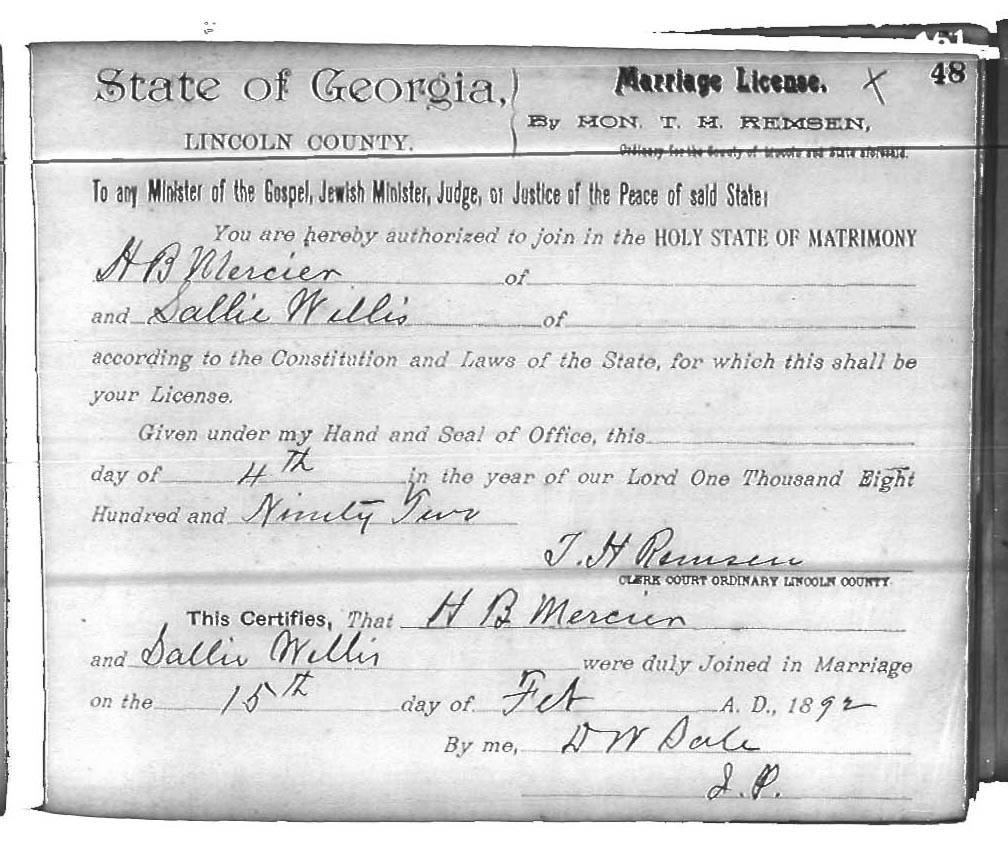 151
State of Georgia,
LINCOLN COUNTY.
Marriage License. X 48
By HON. T. H. REMSEN,
Ordinary for the County of Lincoln and State aforesaid.
To any Minister of the Gospel, Jewish Minister, Judge, or Justice of the Peace of said State:
You are hereby authorized to join in the HOLY STATE OF MATRIMONY
H B Mercier of
and Sallie Willis of
according to the Constitution and Laws of the State, for which this shall be
your License.
Given under my Hand and Seal of Office, this
day of 4th in the year of our Lord One Thousand Eight
Hundred and Ninety Two
T. H Remsen
CLERK COURT ORDINARY LINCOLN COUNTY.
This Certifies, That H B Mercier
and Sallie Willis were duly Joined in Marriage
on the 15th day of Feb A. D., 1892
By me, D W Dale
J. P.